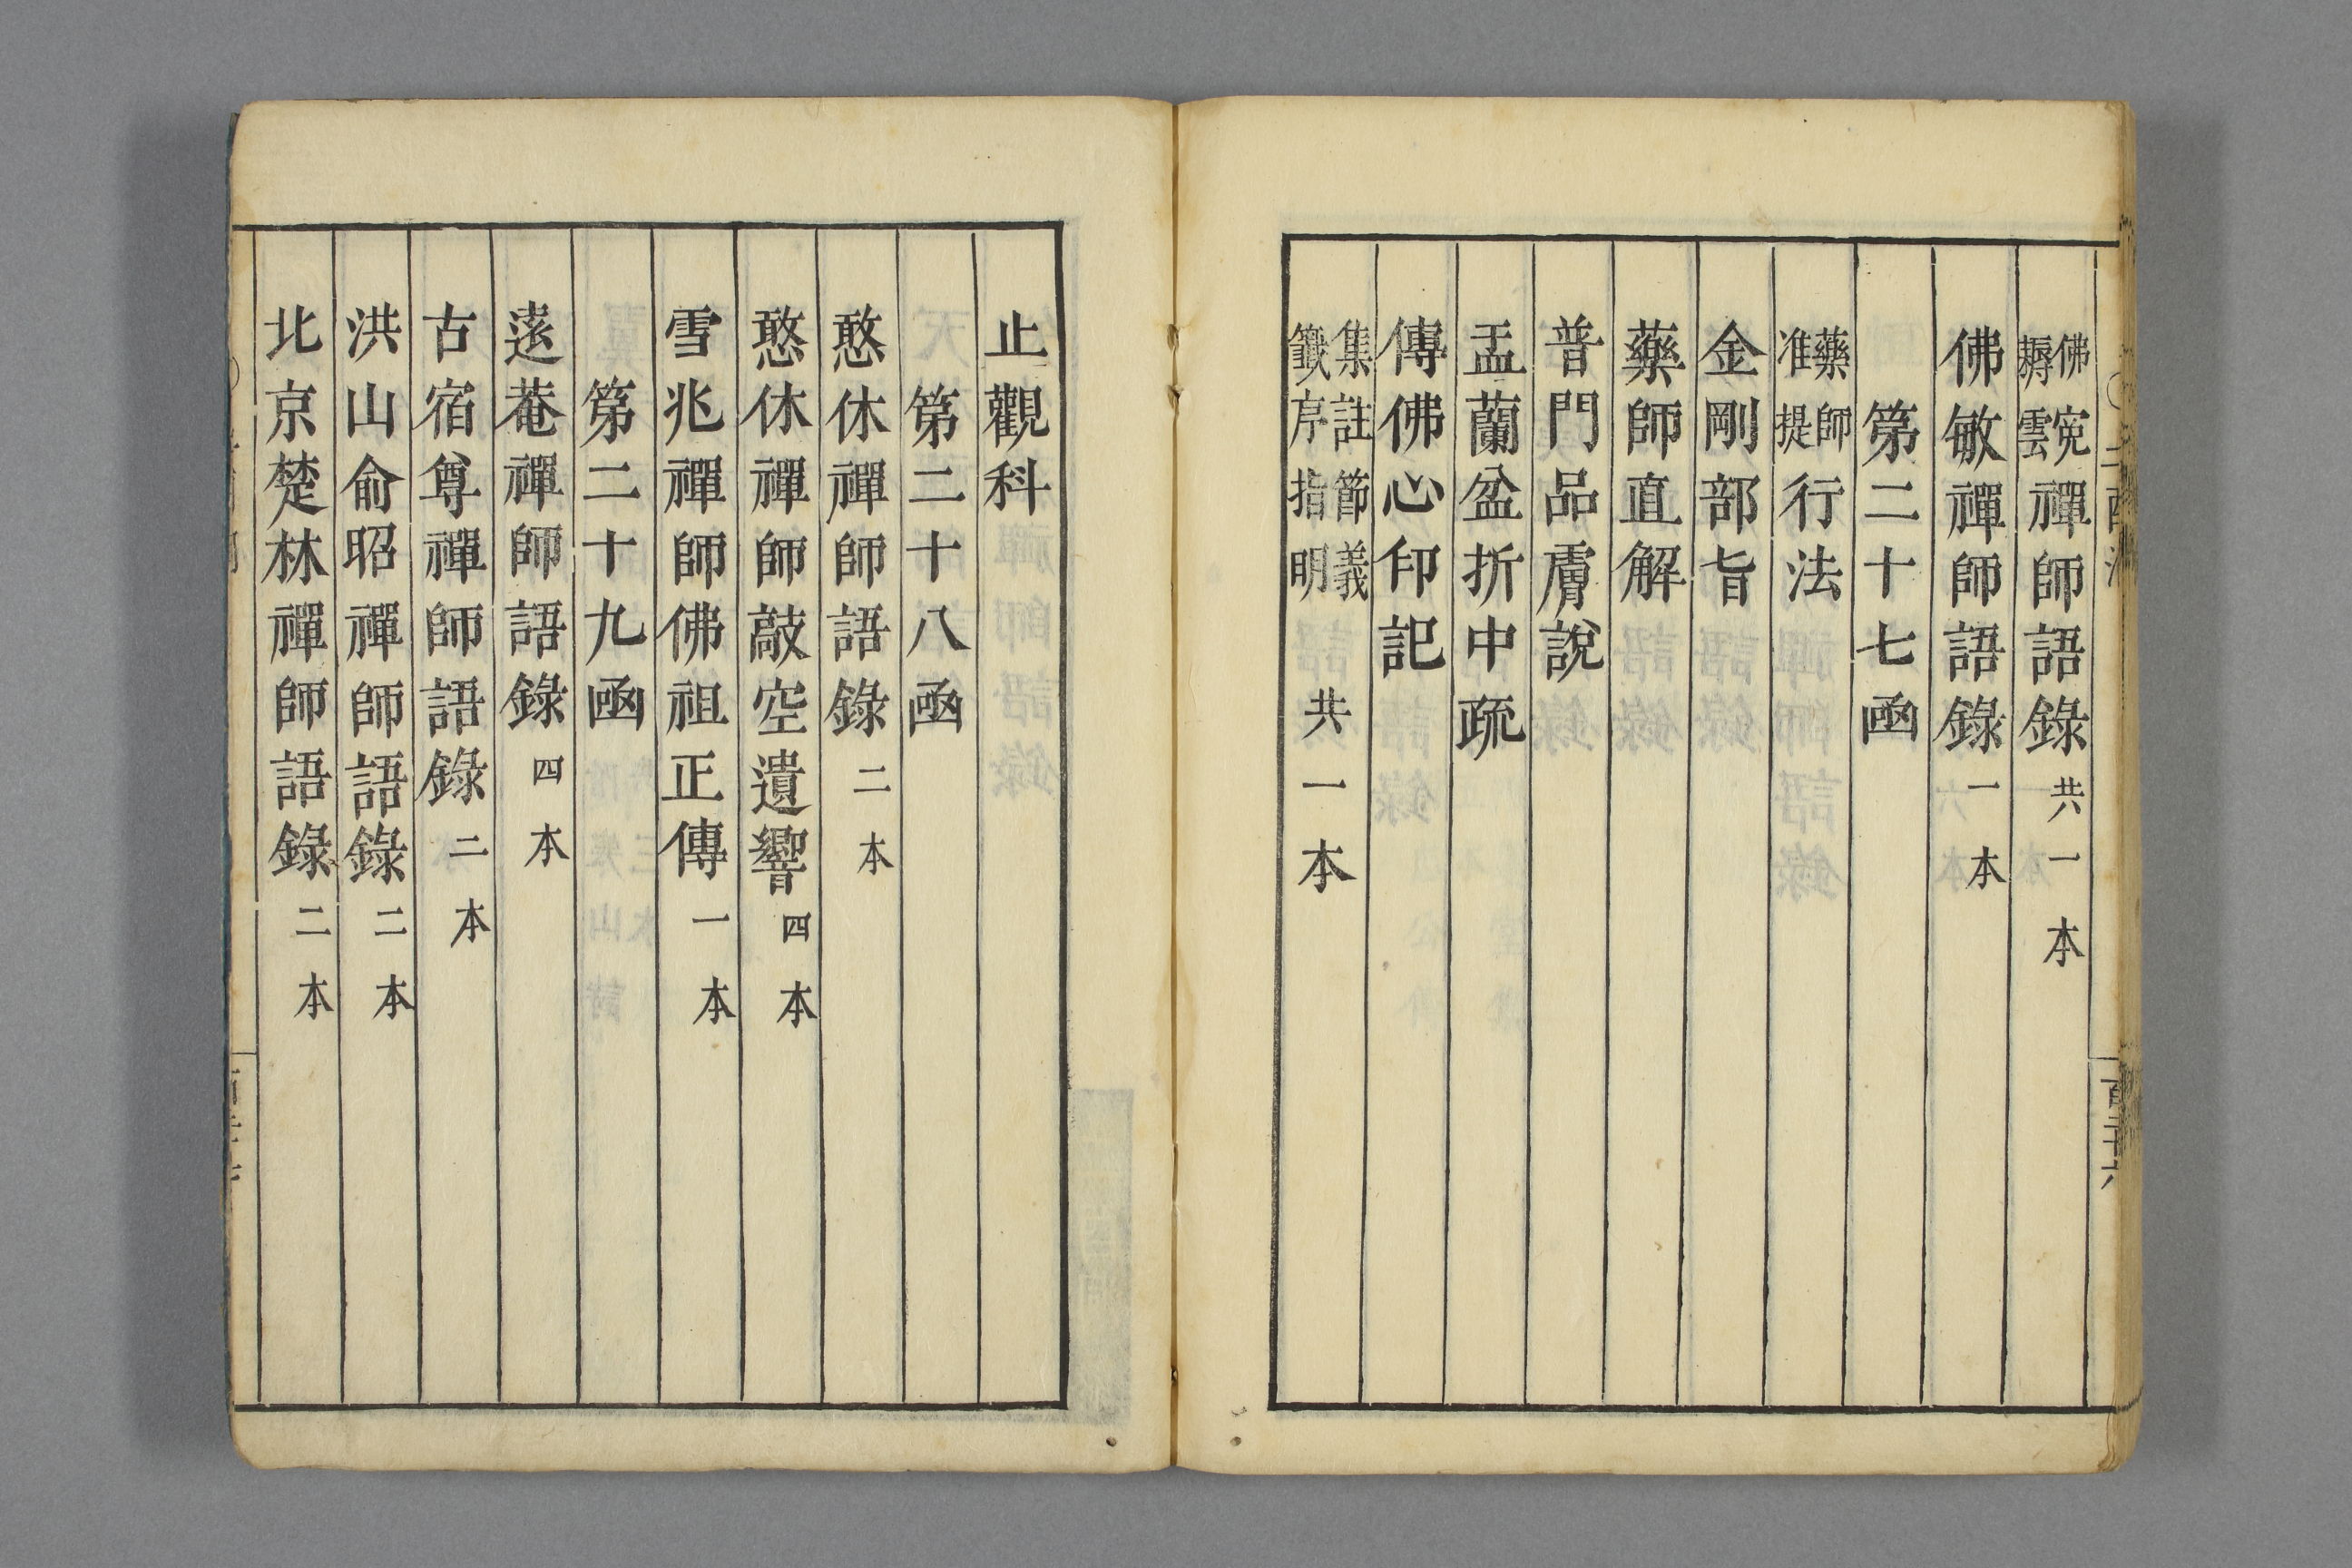 佛冤耨雲禪師語錄共一本
佛敏禪師語錄一本
第二十七函
藥師准提行法
金剛部旨
藥師直解
普門品膚說
盂蘭盆折中疏
傳佛心印記
集註節義籤序指明共一本
止觀科
第二十八函
憨休禪師語錄二本
憨休禪師敲空遺響四本
雪兆禪師佛祖正傳一本
第二十九函
遠菴禪師語錄四本
古宿尊禪師語錄二本
洪山俞昭禪師語錄二本
北京楚林禪師語錄二本